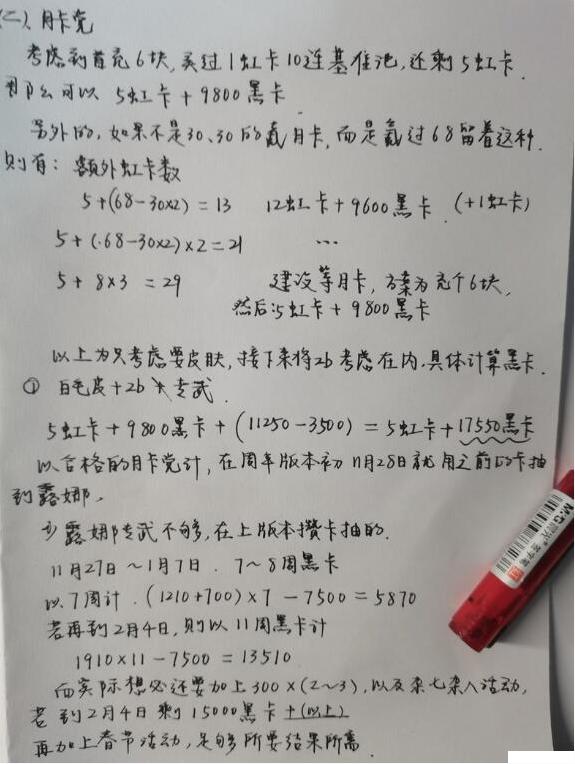 (二)、月卡党
考虑到首充6块,买过1虹卡10连基准池,还剩5虹卡.
那么可以 5虹卡+9800黑卡
另外的,如果不是30、30的氪月卡,而是氪过68留着这种.
则有: 额外虹卡数
5+(68-30×2)=13 12虹卡+9600黑卡 (+1虹卡)
5+(68-30×2)×2=21 ...
5+8×3=29 建议等月卡,方案为充个6块,
然后:5虹卡+9800黑卡
以上为只考虑要皮肤,接下来将2b考虑在内.具体计算黑卡.
① 白毛皮+2b 专武.
5虹卡+9800黑卡+(11250-3500)=5虹卡+17550黑卡
以合格的月卡党计,在周年版本初11月28日就用之前的卡抽
到露娜,
露娜专武不够,在上版本攒卡抽的.
11月27日~1月7日. 7~8周黑卡
以7周计.(1210+700)×7-7500=5870
若再到2月4日,则以11周黑卡计
1910×11-7500=13510
而实际想必还要加上300×(2~3),以及杂七杂八活动,
若到2月4日剩15000黑卡+(以上)
再加上春节活动,足够所要结果所需.
M&G